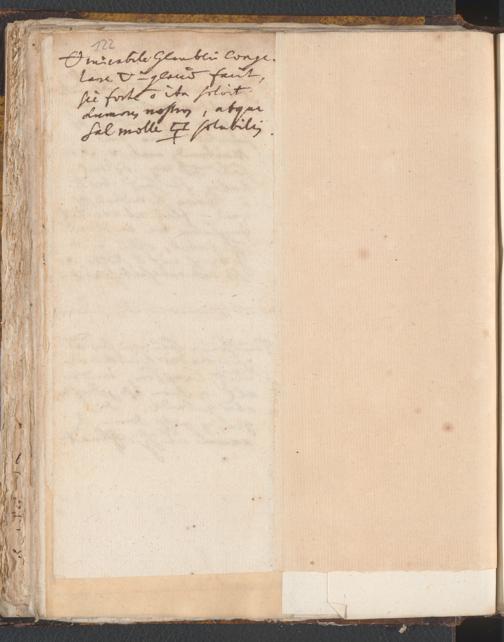 122
mirabile Glauberi conge-
lare in glaciem facit,
sic forte ita solvit
humores nostros, atque
Sal molle solubilis.